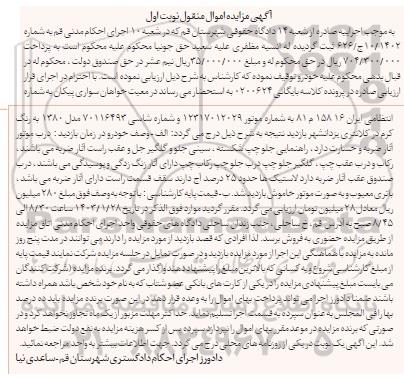 آگهی مزایده اموال منقول نوبت اول
به موجب اجرائیه صادره از شعبه ۱۴ دادگاه حقوقی شهرستان قم که در شعبه ۱۰ اجرای احکام مدنی قم به شماره
۱۴۰۲/۱۰ ج/۶۲۶ ثبت گردیده له انسیه مظفری علیه سعید حق جونیا محکوم علیه محکوم است به پرداخت
۷۰۴/۳۰۰/۰۰۰ ریال در حق محکوم له و مبلغ ۳۵/۰۰۰/۰۰۰ ریال نیم عشر در حق صندوق دولت ، محکوم له در
قبال بدهی محکوم علیه خودرو توقیف نموده که کارشناس به شرح ذیل ارزیابی نموده است. با احترام در اجرای قرار
ارزیابی صادره در پرونده کلاسه بایگانی ۰۲۰۰۶۲۴ به استحضار می رساند در معیت خواهان سواری پیکان به شماره
انتظامی ایران ۱۶ ۱۵۸ م ۸۱ به شماره موتور ۱۲۳۱۷۰۱۲۰۲۹ و شماره شاسی ۷۰۱۱۶۴۹۳ مدل ۱۳۸۰ به رنگ
کرم در کلانتری یزدانشهر بازدید نتیجه به شرح ذیل درج می گردد: الف-وصف خودرو در زمان بازدید : درب موتور
آثار ضربه و خسارت دارد ، راهنمایی جلو چپ شکسته ، سینی جلو و گلگیر جل و عقب راست آثار ضربه می باشند ،
رکاب و درب عقب چپ ، گلگیر جلو چپ درب جلو چپ رکاب چپ دارای آثار رنگ زدگی و پوسیدگی می باشند ، درب
صندوق عقب آثار ضربه دارد لاستیک ها حدود ۲۵ درصد آج دارند سقف قسمت راست دارای آثار ضربه می باشد ،
باتری معیوب و به صورت موتور خاموش بازدید شد. ب-قیمت پایه کارشناسی : با توجه به وصف فوق مبلغ ۲۸۰ میلیون
ریال معادل ۲۸ میلیون تومان ارزیابی می گردد. مقرر گردید موارد فوق الذکر در تاریخ ۱۴۰۳/۱/۲۸ ساعت ۸/۳۰ الی
۸/۴۵ صبح به آدرس قم ، خ ساحلی ، جنب زندان ساحلی دادگاه های حقوقی واحد اجرای احکام مدنی اتاق مزایده
از طریق مزایده حضوری به فروش برسد. لذا افرادی که قصد بازدید از مورد مزایده را دارند می توانند در مدت پنج روز
مانده به مزایده با هماهنگی این اجرا از مورد مزایده بازدید و در صورت تمایل در جلسه مزایده شرکت نمایند قیمت پایه
از مبلغ کارشناسی شروع و به کسانی که بالاترین مبلغ را پیشنهاد دهند واگذار می گردد. برنده مزایده (شرکت کنندگان
می بایست مبلغ پیشنهادی مزایده را در یکی از کارت های بانکی عضو شتاب که به نام خود شخص باشد همراه داشته
باشند ضمنا دادورز اجرا می تواند پرداخت بهای اموال را به وعده قرار دهد، در این صورت برنده مزایده باید ده درصد
بها را فی المجلس به عنوان سپرده به قسمت اجرا تسلیم نماید. حداکثر مهلت مزبور از یک ماه تجاوز نخواهد کرد و در
صورتی که برنده مزایده در موعد مقرر بهای اموال را نپردازد، سپرده پس از کسر هزینه مزایده به نفع دولت ضبط خواهد
شد. این آگهی یک نوبت در یکی از روزنامه های محلی درج می گردد. جهت اطلاعات بیشتر به واحد مراجعه نمائید.
دادورز اجرای احکام دادگستری شهرستان قم-ساعدی نیا